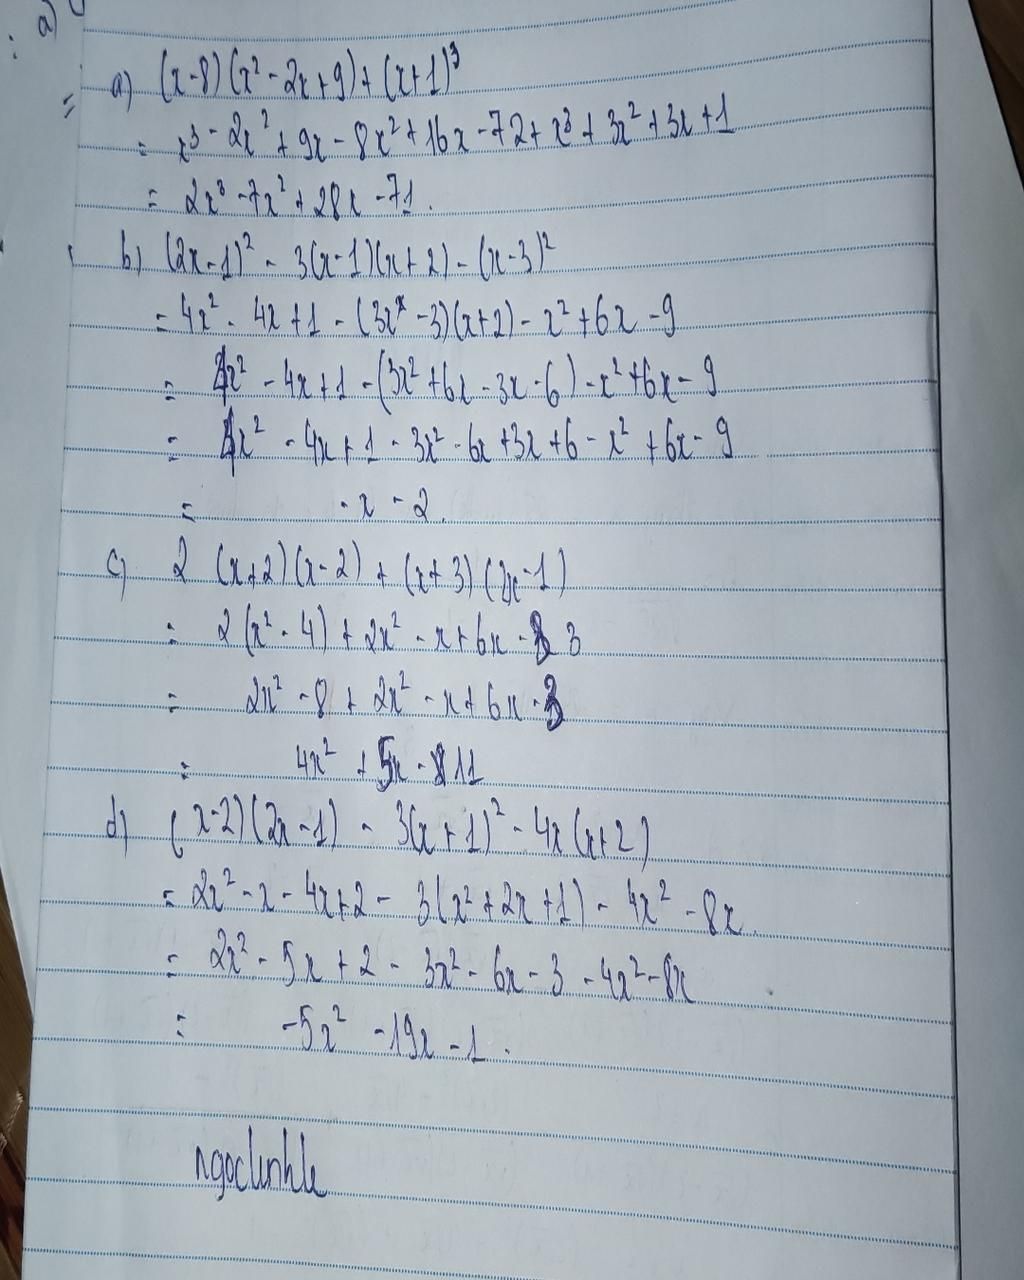 a)
a) (x-8)(x²-2x+9)+(x+1)³
= x³-2x²+9x-8x²+16x-72+x³+3x²+3x+1
= 2x³-7x²+28x-71.
b) (2x-1)²-3(x-1)(x+2)-(x-3)²
= 4x²-4x+1-(3x-3)(x+2)-x²+6x-9
= 4x²-4x+1-(3x²+6x-3x-6)-x²+6x-9
= 4x²-4x+1-3x²-6x+3x+6-x²+6x-9
= -x-2.
c) 2(x+2)(x-2)+(x+3)(2x-1)
= 2(x²-4)+2x²-x+6x-3
= 2x²-8+2x²-x+6x-3
= 4x²+5x-11
d) (x-2)(2x-1)-3(x+1)²-4x(x+2)
= 2x²-x-4x+2-3(x²+2x+1)-4x²-8x.
= 2x²-5x+2-3x²-6x-3-4x²-8x
= -5x²-19x-1.
ngoclinhle